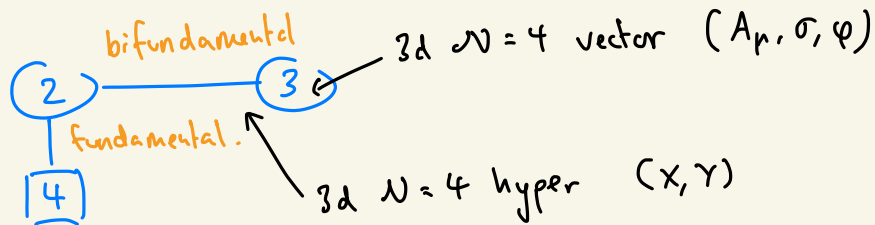 bifundamental
3d N=4 vector (Aμ, σ, φ)
2
3
fundamental.
4
3d N=4 hyper (X,Y)